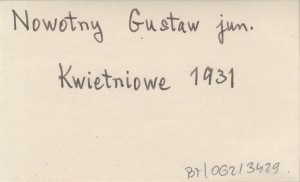 Nowotny Gustaw jun.
Kwietniowe 1931
BT/OG2/3429